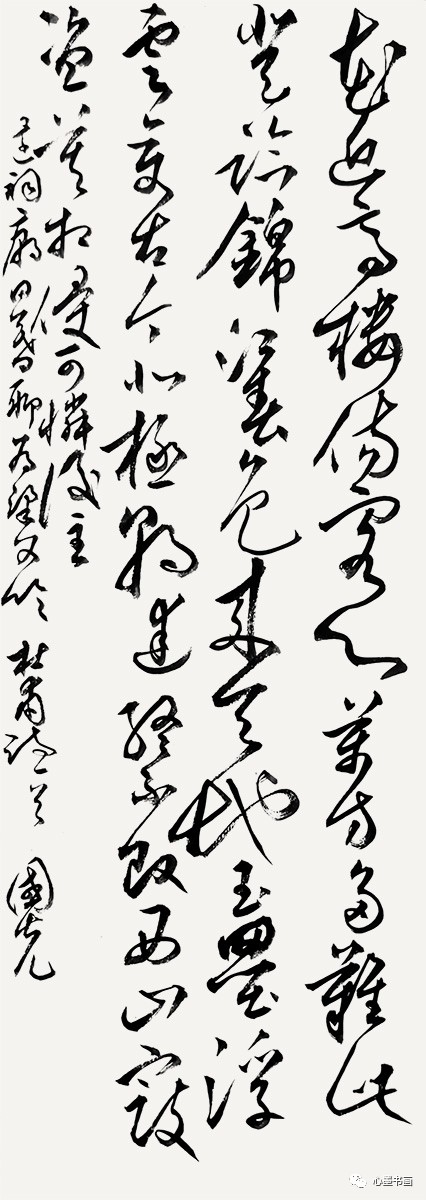 花近高樓傷客心萬方多難此
登臨錦江春色來天地玉壘浮
雲變古今北極朝廷終不改西山寇
盜莫相侵可憐後主
還祠廟日暮聊為梁父吟 杜甫詩一首 國
心墨书画